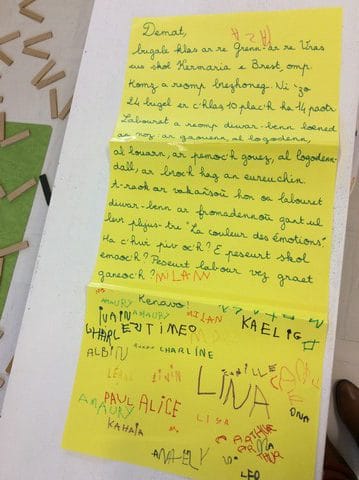 Demat,
bugale klas ar re Grenn-ar re Vras
eus skol Kermaria e Brest omp.
Komz a reomp brezhoneg. Ni 'zo
24 bugel er c'hlas, 10 plac'h ha 14 paotr.
Labourat a reomp diwar-benn loened
an noz: ar gaouenn, al logodenn,
al louarn, ar pemoc'h gouez, al logodenn-
dall, ar broc'h hag an eureuchin.
A-raok ar vakañsoù hon eus labouret
diwar-benn ar fromadennoù gant ul
levr plijus-tre "La couleur des émotions".
Ha c'hwi piv oc'h? E peseurt skol
emaoc'h? Peseurt labour vez graet
ganeoc'h? MILANN
Kenavo!
AMAURY
AMAURY
MILAN
IWAIN
KAELIG
CHARLE
TIMEO
ALBIN
CHARLINE
CAMILLE
LINA
PAUL
ALICE
AMAURY
LISA
ONA
KAHAIA
ARTHUR
LEO